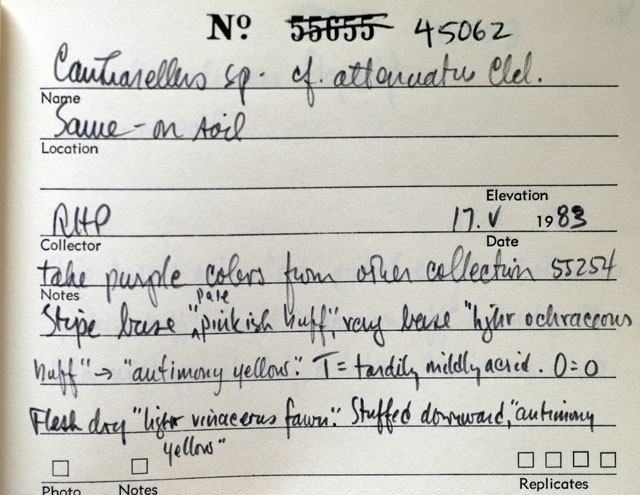 Nº 55655 45062
Cantharellus sp. cf. attenuatus Clel.
Name
Same - on soil
Location
Elevation
RHP 17. V 1983
Collector Date
take purple colors from other collection 55254
Notes
Stipe base "pale pinkish buff", very base "light ochraceous
buff" → "antimony yellow". T = tardily mildly acrid. O = O
Flesh dry "light vinaceous fawn". Stuffed downward, "antimony
yellow"
Photo Notes Replicates